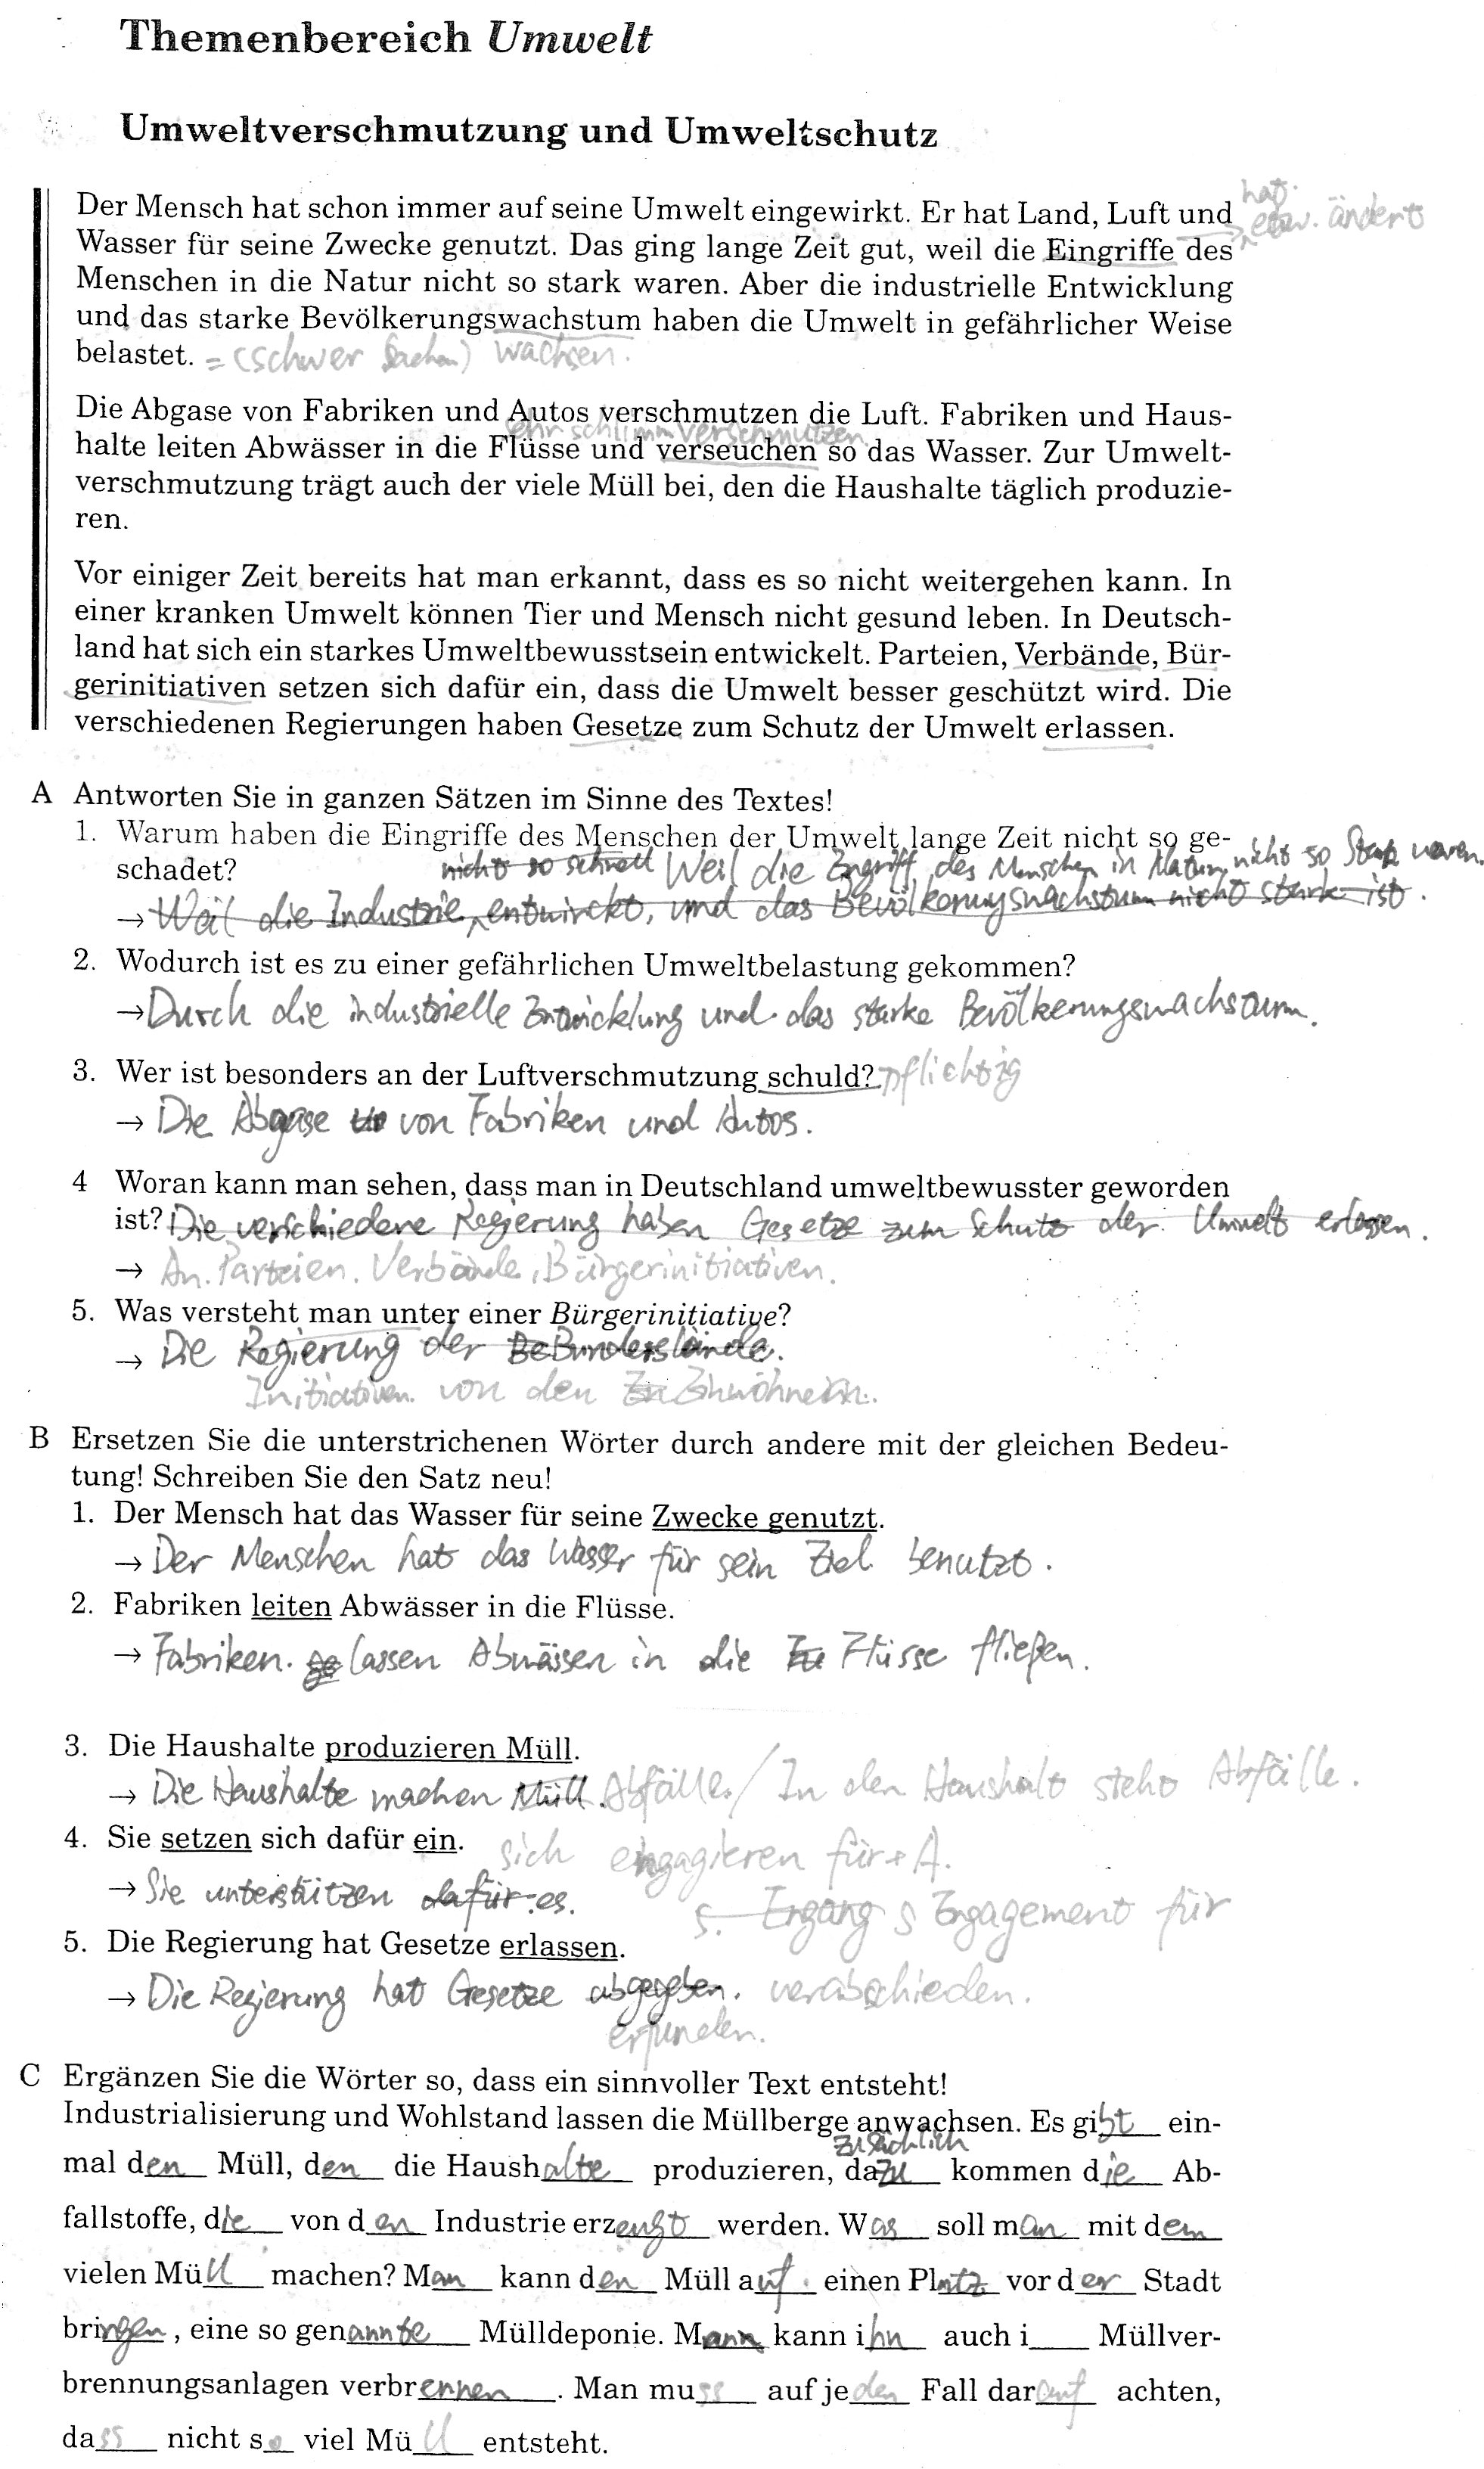 Themenbereich Umwelt
Umweltverschmutzung und Umweltschutz
hat
Der Mensch hat schon immer auf seine Umwelt eingewirkt. Er hat Land, Luft und etw. ändert
Wasser für seine Zwecke genutzt. Das ging lange Zeit gut, weil die Eingriffe des
Menschen in die Natur nicht so stark waren. Aber die industrielle Entwicklung
und das starke Bevölkerungswachstum haben die Umwelt in gefährlicher Weise
belastet. = (schwer machen) wachsen.
Die Abgase von Fabriken und Autos verschmutzen die Luft. Fabriken und Haus-
sehr schlimm verschmutzen.
halte leiten Abwässer in die Flüsse und verseuchen so das Wasser. Zur Umwelt-
verschmutzung trägt auch der viele Müll bei, den die Haushalte täglich produzie-
ren.
Vor einiger Zeit bereits hat man erkannt, dass es so nicht weitergehen kann. In
einer kranken Umwelt können Tier und Mensch nicht gesund leben. In Deutsch-
land hat sich ein starkes Umweltbewusstsein entwickelt. Parteien, Verbände, Bür-
gerinitiativen setzen sich dafür ein, dass die Umwelt besser geschützt wird. Die
verschiedenen Regierungen haben Gesetze zum Schutz der Umwelt erlassen.
A Antworten Sie in ganzen Sätzen im Sinne des Textes!
1. Warum haben die Eingriffe des Menschen der Umwelt lange Zeit nicht so ge-
schadet? nicht so schnell Weil die Eingriff des Menschen in Natur nicht so stark waren.
→ Weil die Industrie entwirckt, und das Bevölkerungswachstum nicht stark ist.
2. Wodurch ist es zu einer gefährlichen Umweltbelastung gekommen?
→ Durch die industrielle Entwicklung und das starke Bevölkerungswachstum.
3. Wer ist besonders an der Luftverschmutzung schuld? pflichtig
→ Die Abgase von Fabriken und Autos.
4 Woran kann man sehen, dass man in Deutschland umweltbewusster geworden
ist? Die verschiedene Regierung haben Gesetze zum Schutz der Umwelt erlassen.
→ An Parteien. Verbände, Bürgerinitiativen.
5. Was versteht man unter einer Bürgerinitiative?
→ Die Regierung der Bundesländer.
Initiativen von den Einwöhnern.
B Ersetzen Sie die unterstrichenen Wörter durch andere mit der gleichen Bedeu-
tung! Schreiben Sie den Satz neu!
1. Der Mensch hat das Wasser für seine Zwecke genutzt.
→ Der Menschen hat das Wasser für sein Ziel benutzt.
2. Fabriken leiten Abwässer in die Flüsse.
→ Fabriken lassen Abwässen in die Flüsse fließen.
3. Die Haushalte produzieren Müll.
→ Die Haushalte machen Müll. Abfälle. / In den Haushalt steht Abfälle.
4. Sie setzen sich dafür ein. sich engagieren für + A.
→ Sie unterstützen dafür es. s. Engang s Engagement für
5. Die Regierung hat Gesetze erlassen.
→ Die Regierung hat Gesetze abgegeben. verabschieden.
erfunden.
C Ergänzen Sie die Wörter so, dass ein sinnvoller Text entsteht!
Industrialisierung und Wohlstand lassen die Müllberge anwachsen. Es gibt ein-
zusächlich
mal den Müll, den die Haushalte produzieren, dazu kommen die Ab-
fallstoffe, die von den Industrie erzeugt werden. Was soll man mit dem
vielen Müll machen? Man kann den Müll auf einen Platz vor der Stadt
bringen, eine so genannte Mülldeponie. Mann kann ihn auch i___ Müllver-
brennungsanlagen verbrennen. Man muss auf jeden Fall darauf achten,
dass nicht so viel Müll entsteht.